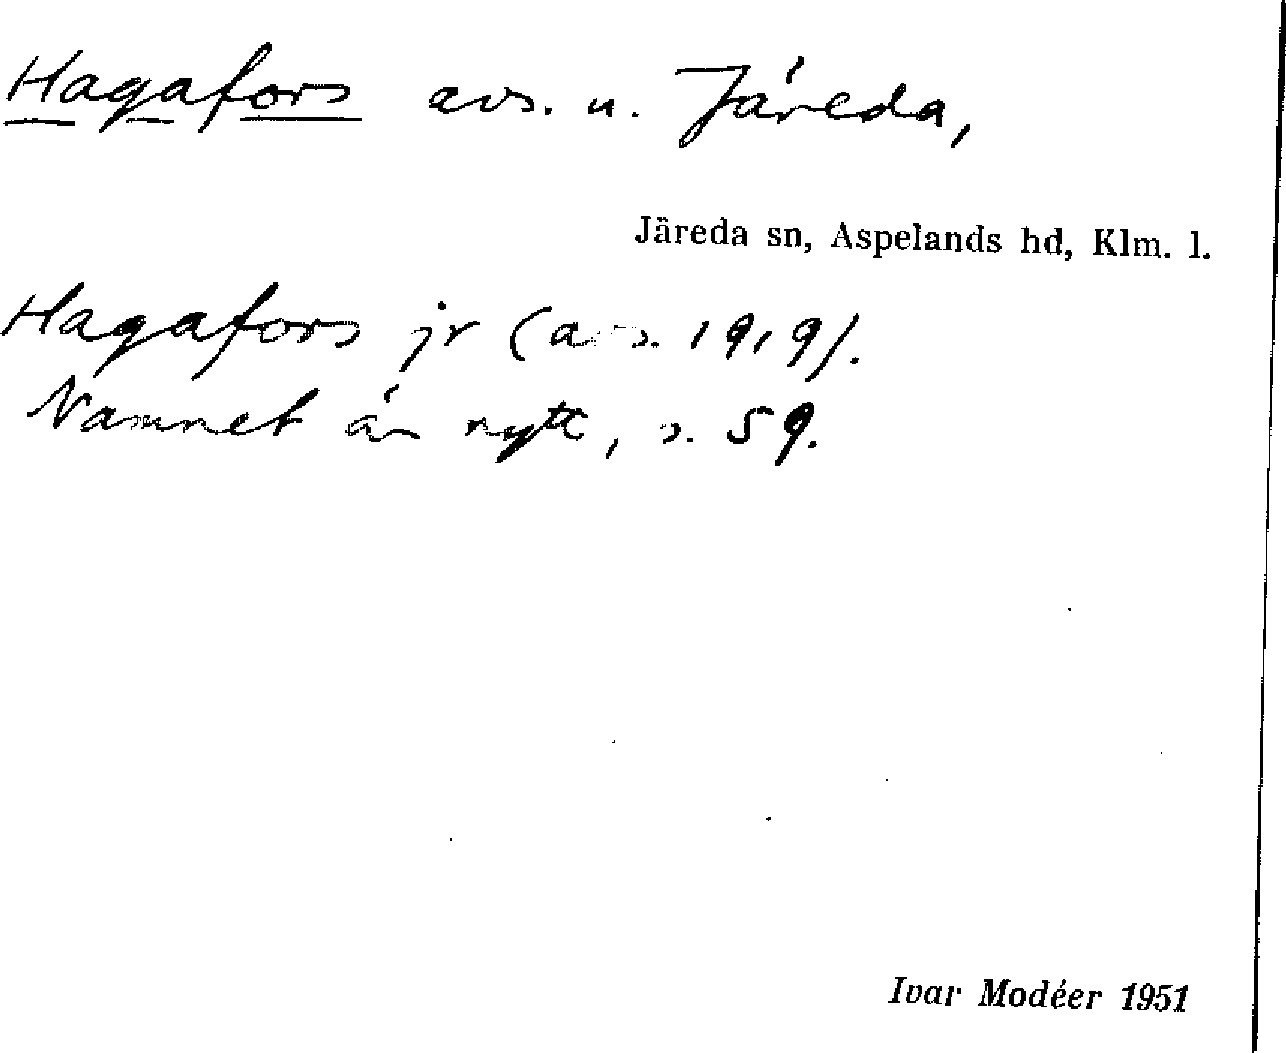 Hagafors avs. u. Järeda,
Järeda sn, Aspelands hd, Klm. l.
Hagafors jr (avs. 1919).
Namnet är nytt, s. 59.
Ivar Modéer 1951